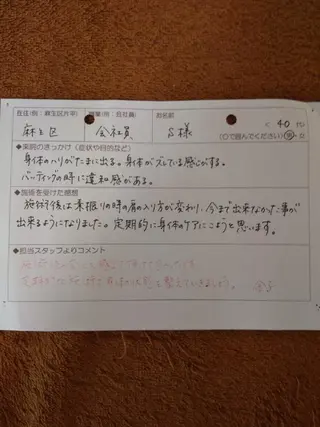 在住(例:麻生区片平) 職業(例:会社員) お名前
麻生区 会社員 S様 < 40 代>
(○で囲んでください) 男・女
◆来院のきっかけ(症状や目的など)
身体のハリがたまに出る。身体がズレている感じがする。
バッティングの時に違和感がある。
◆施術を受けた感想
施術後は素振りの時の肩の入り方が変わり、今まで出来なかった事が
出来るようになりました。定期的に身体のケアにこようと思います。
◆担当スタッフよりコメント
整えていきましょう。